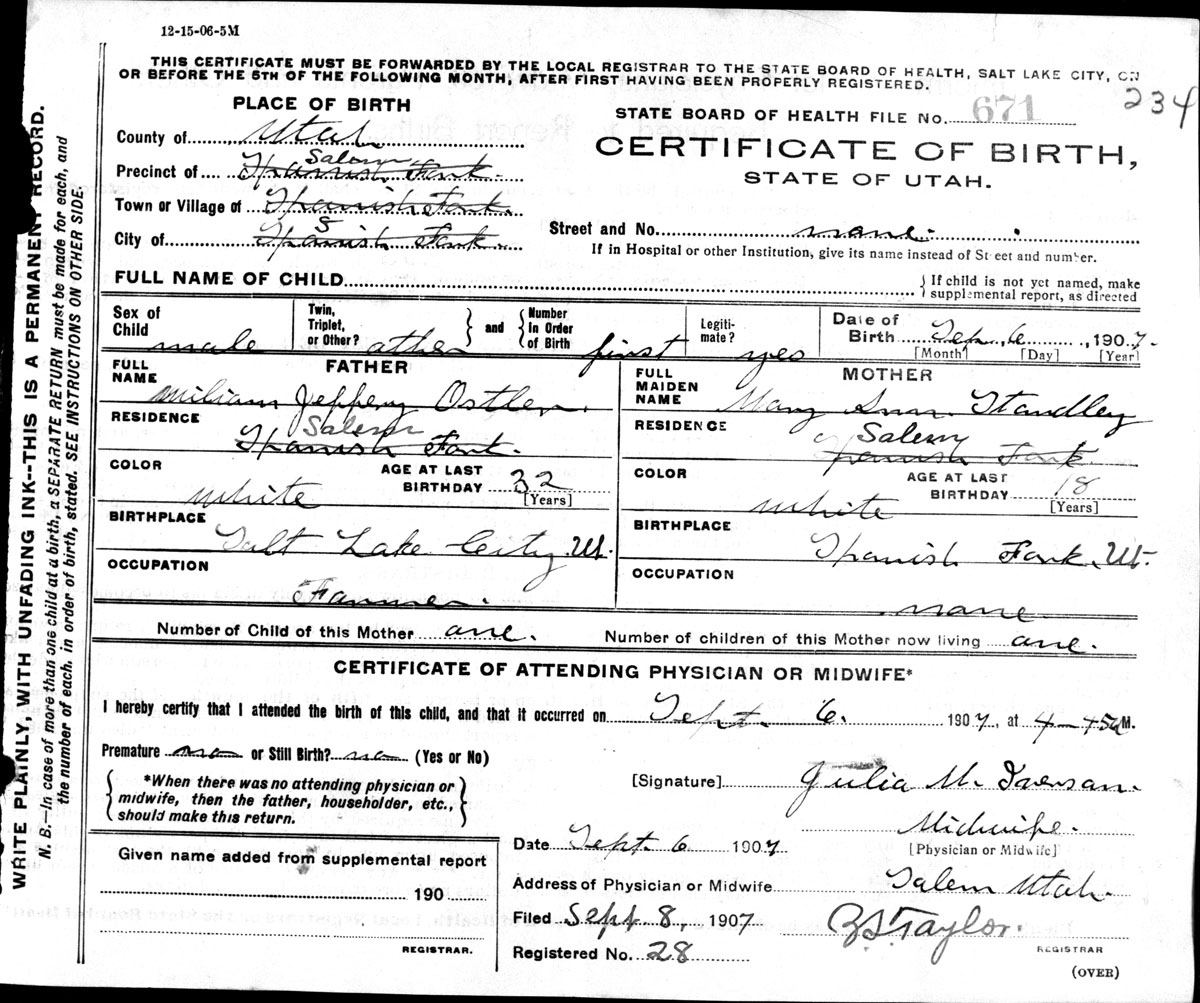 12-15-06-5M
THIS CERTIFICATE MUST BE FORWARDED BY THE LOCAL REGISTRAR TO THE STATE BOARD OF HEALTH, SALT LAKE CITY, ON
OR BEFORE THE 5TH OF THE FOLLOWING MONTH, AFTER FIRST HAVING BEEN PROPERLY REGISTERED.
234
WRITE PLAINLY, WITH UNFADING INK--THIS IS A PERMANENT RECORD.
N. B.--In case of more than one child at a birth, a SEPARATE RETURN must be made for each, and
the number of each, in order of birth, stated. SEE INSTRUCTIONS ON OTHER SIDE.
PLACE OF BIRTH
STATE BOARD OF HEALTH FILE No. 671
CERTIFICATE OF BIRTH,
STATE OF UTAH.
County of Utah
Salem
Precinct of Spanish Fork.
Town or Village of Spanish Fork.
S
City of Spanish Fork.
Street and No. none.
If in Hospital or other Institution, give its name instead of Street and number.
FULL NAME OF CHILD
{ If child is not yet named, make
supplemental report, as directed
Sex of Child male
Twin, Triplet, or Other? other
and
Number In Order of Birth first
Legiti-mate? yes
Date of Birth Sep. 6, 1907.
[Month] [Day] [Year]
FATHER
FULL NAME William Jeffery Ostler.
RESIDENCE
Salem
Spanish Fork.
COLOR white
AGE AT LAST BIRTHDAY 32
[Years]
BIRTHPLACE
Salt Lake City Ut.
OCCUPATION
Farmer.
MOTHER
FULL MAIDEN NAME Mary Ann Standley
RESIDENCE
Salem
Spanish Fork
COLOR white
AGE AT LAST BIRTHDAY 18
[Years]
BIRTHPLACE
Spanish Fork, Ut.
OCCUPATION
none
Number of Child of this Mother one.
Number of children of this Mother now living one.
CERTIFICATE OF ATTENDING PHYSICIAN OR MIDWIFE*
I hereby certify that I attended the birth of this child, and that it occurred on Sept. 6. 1907, at 4-45 a M.
Premature no or Still Birth? no (Yes or No)
*When there was no attending physician or
midwife, then the father, householder, etc.,
should make this return.
[Signature] Julia M.
Midwife.
[Physician or Midwife]
Date Sept. 6 1907
Address of Physician or Midwife Salem Utah.
Filed Sept 8, 1907
Taylor.
REGISTRAR
Registered No. 28
(OVER)
Given name added from supplemental report
190
REGISTRAR.